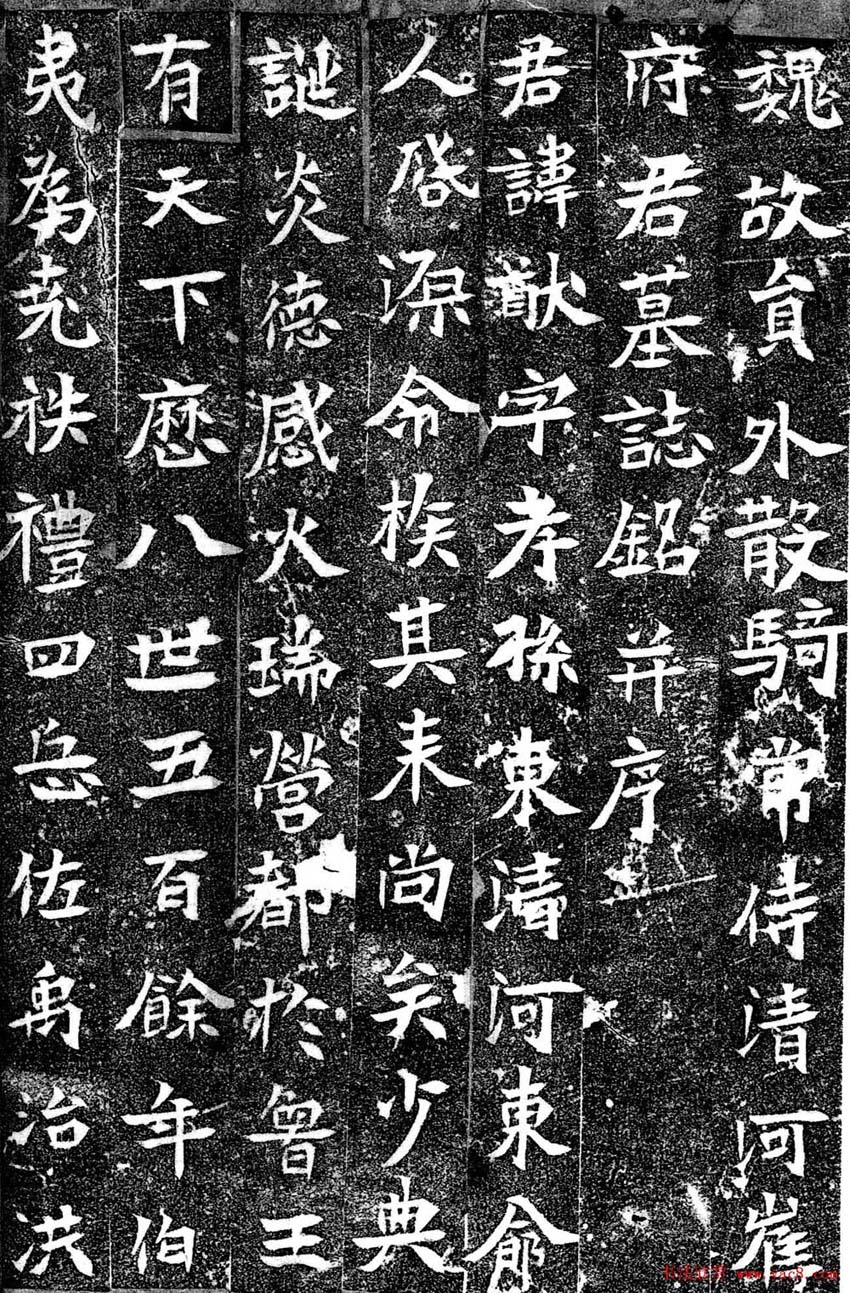 魏故員外散騎常侍清河崔
府君墓誌銘并序
君諱猷字孝孫東清河東俞
人啓源命族其来尚矣少典
誕炎德感火瑞營都於魯王
有天下歷八世五百餘年伯
夷為堯秩禮四岳佐禹治洪
www.yac8.com